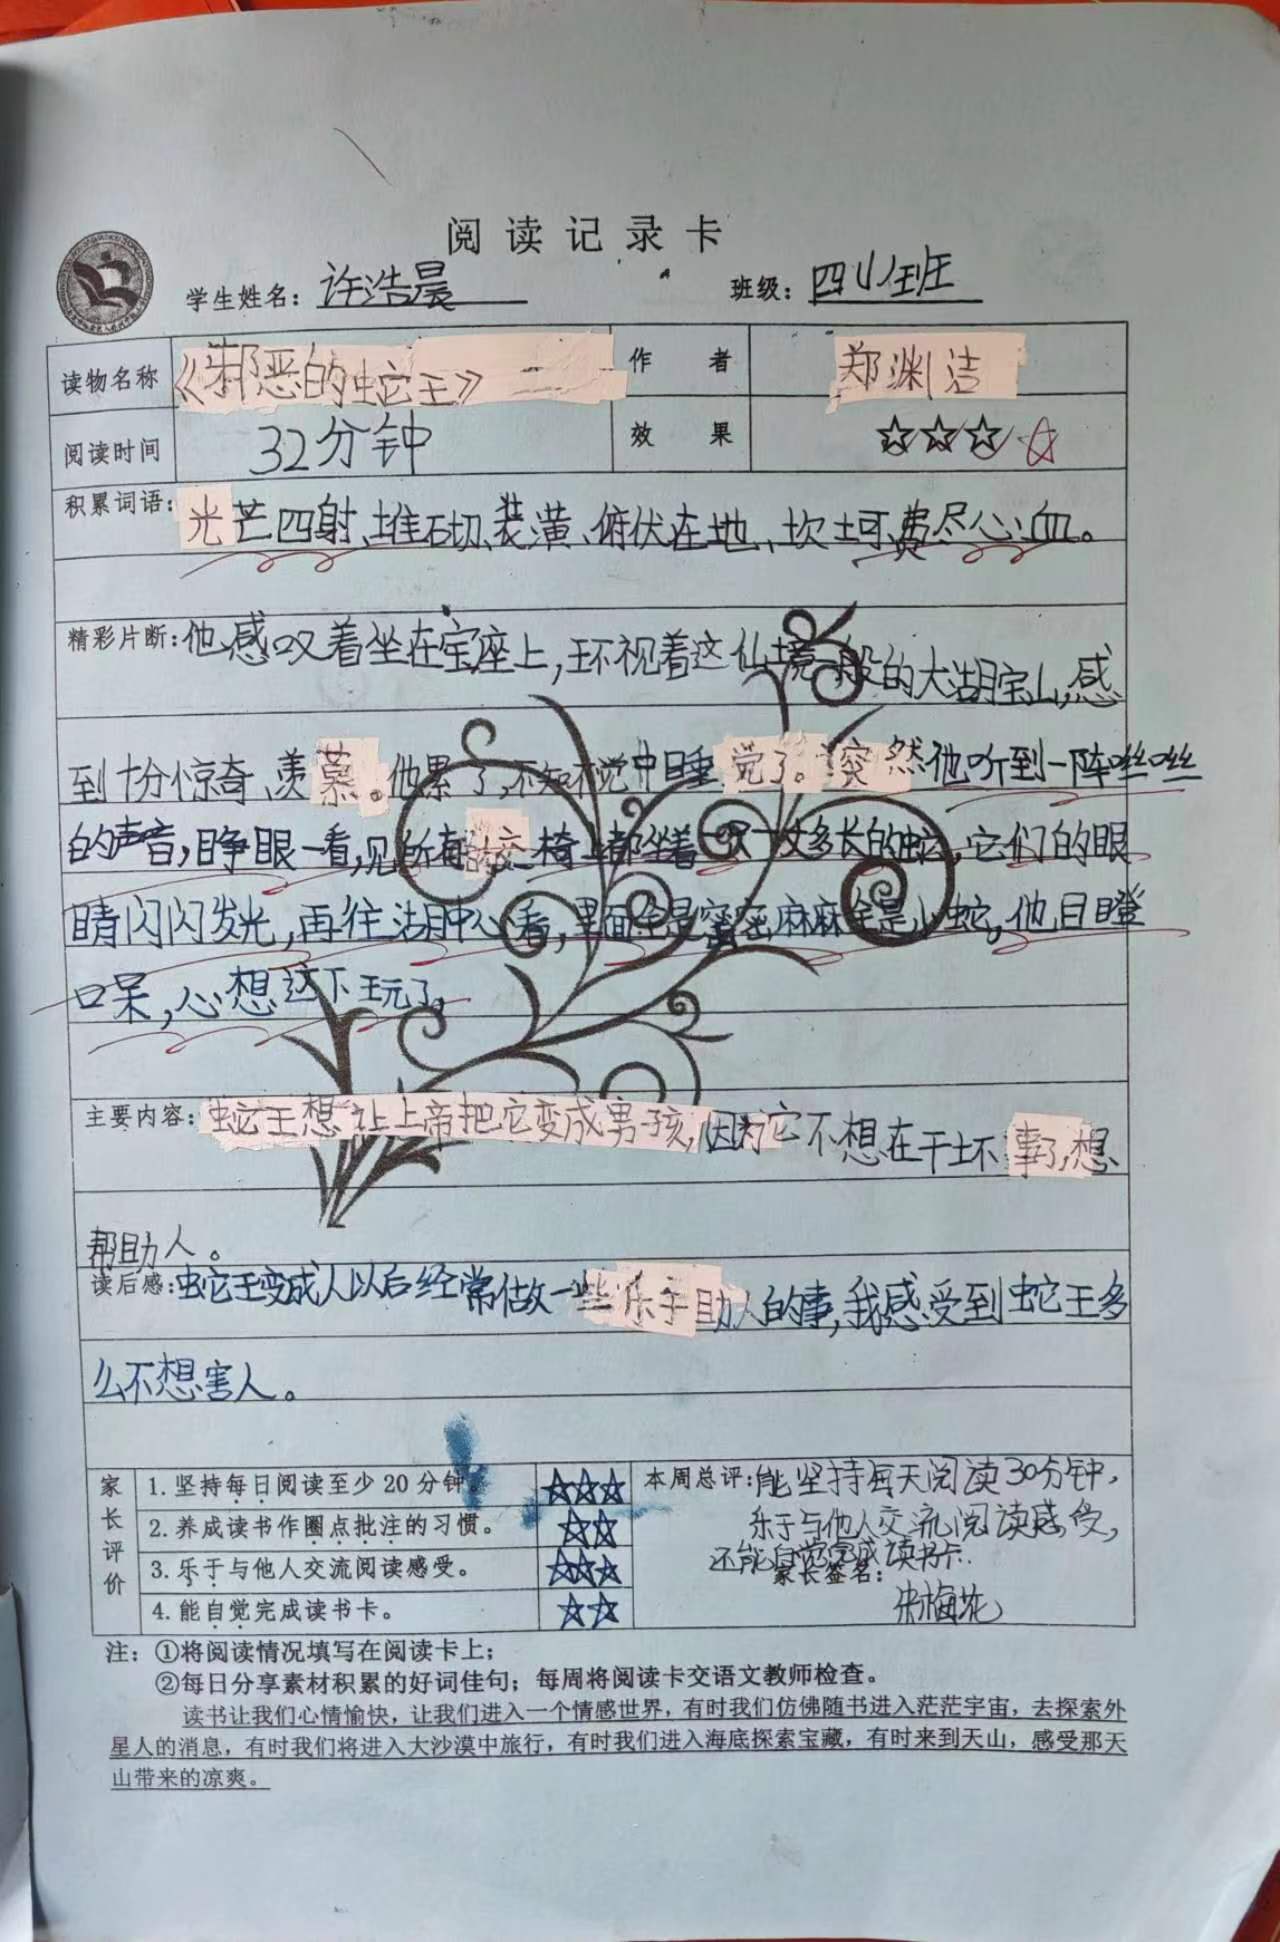 阅读记录卡
学生姓名：许浩晨 班级：四小班
读物名称 《邪恶的蛇王》 作者 郑渊洁
阅读时间 32分钟 效果 ☆☆☆☆
积累词语：光芒四射、堆砌、装潢、俯伏在地、坎坷、费尽心血。
精彩片断：他感叹着坐在宝座上，环视着这仙境一般的大湖宝山，感
到十分惊奇、羡慕。他累了，不知不觉中睡觉了。突然他听到一阵咝咝
的声音，睁眼一看，见所有 椅上都坐着一只一丈多长的蛇，它们的眼
睛闪闪发光，再往湖中心看，里面全是密密麻麻全是小蛇。他目瞪
口呆，心想这下玩了。
主要内容：蛇王想让上帝把它变成男孩，因为它不想在干坏事了，想
帮助人。
读后感：蛇王变成人以后经常做一些乐于助人的事，我感受到蛇王多
么不想害人。
家长评价
1.坚持每日阅读至少20分钟。 ☆☆☆
2.养成读书作圈点批注的习惯。 ☆☆
3.乐于与他人交流阅读感受。 ☆☆☆
4.能自觉完成读书卡。 ☆☆
本周总评：能坚持每天阅读30分钟，
乐于与他人交流阅读感受，
还能自觉完成读书卡.
家长签名：
梅花
注：①将阅读情况填写在阅读卡上；
②每日分享素材积累的好词佳句；每周将阅读卡交语文教师检查。
读书让我们心情愉快，让我们进入一个情感世界，有时我们仿佛随书进入茫茫宇宙，去探索外
星人的消息，有时我们将进入大沙漠中旅行，有时我们进入海底探索宝藏，有时来到天山，感受那天
山带来的凉爽。